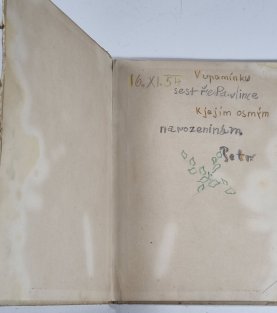 16. XI. 54 V upomínku
sestře Pavlince
K jejím osmým
narozeninám
Petr